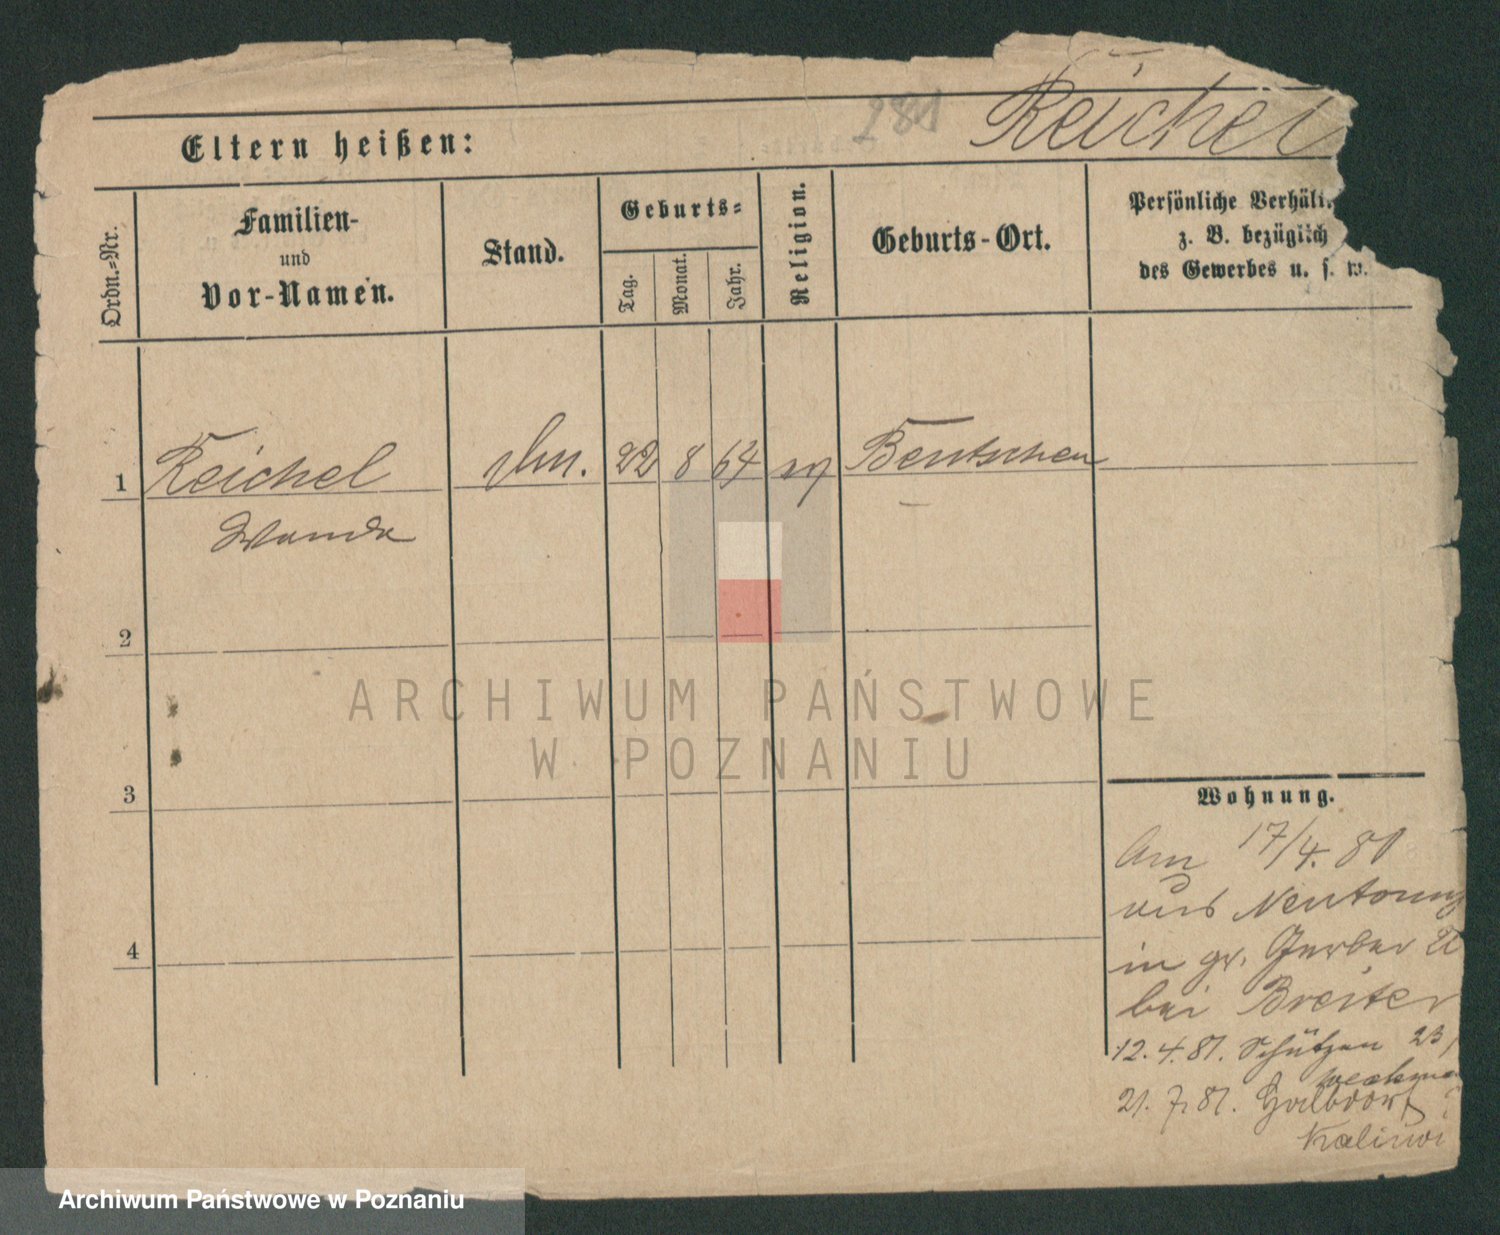 281 Reichel
Eltern heißen:
Ordn.-Nr.
Familien-
und
Vor-Namen.
Stand.
Geburts-
Tag.
Monat.
Jahr.
Religion.
Geburts-Ort.
Persönliche Verhält
z. B. bezüglich
des Gewerbes u. s. w.
1 Reichel 22 8 64 Bentschen
Wanda
2
3
4
ARCHIWUM PAŃSTWOWE
W POZNANIU
Wohnung.
Am 17/4. 81
aus Neutomy
in gr. Gerber
bei Breiter
12. 4. 81. Schützen 23
21. 7. 81. Halbdorf
Archiwum Państwowe w Poznaniu